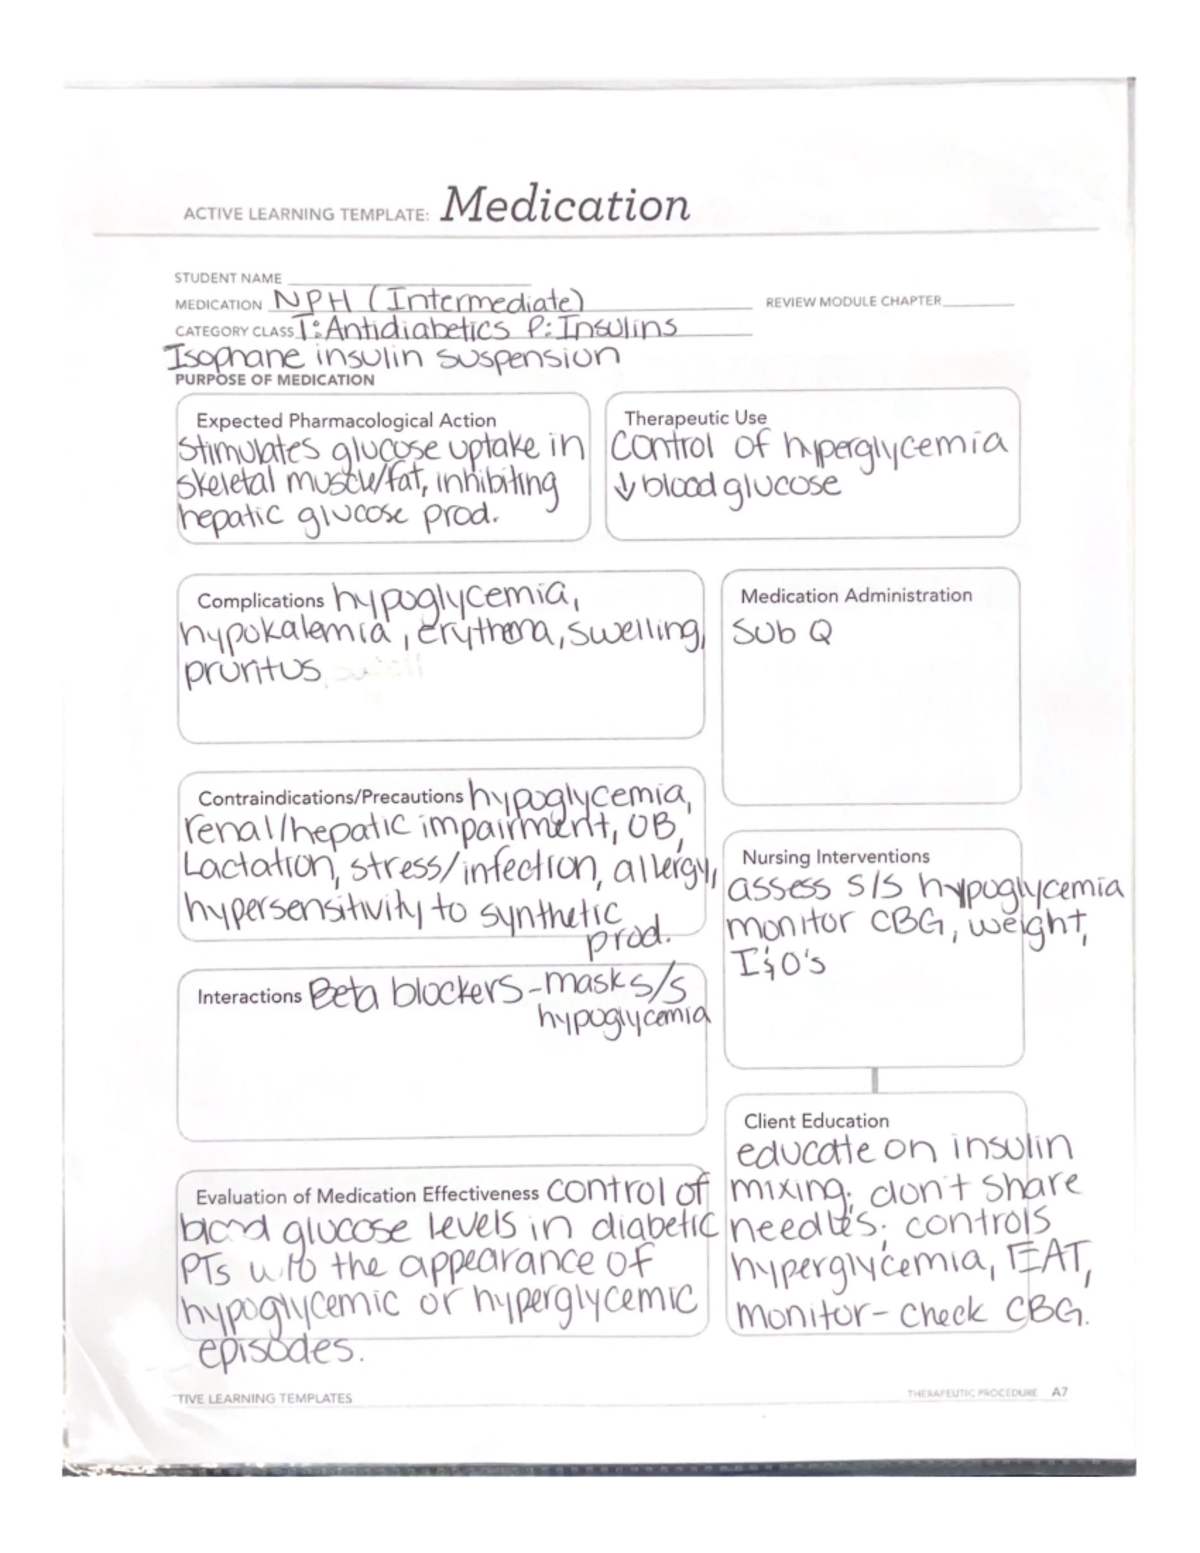 ACTIVE LEARNING TEMPLATE: Medication
STUDENT NAME
MEDICATION NPH (Intermediate)
REVIEW MODULE CHAPTER
CATEGORY CLASS T: Antidiabetics P: Insulins
Isophane insulin suspension
PURPOSE OF MEDICATION
Expected Pharmacological Action
Stimulates glucose uptake in
skeletal muscle/fat, inhibiting
hepatic glucose prod.
Therapeutic Use
Control of hyperglycemia
↓ blood glucose
Complications hypoglycemia,
hypokalemia, erythema, swelling,
pruritus
Medication Administration
Sub Q
Contraindications/Precautions hypoglycemia,
renal/hepatic impairment, OB,
Lactation, stress/infection, allergy,
hypersensitivity to synthetic
prod.
Nursing Interventions
assess s/s hypoglycemia
monitor CBG, weight,
I&O's
Interactions Beta blockers - mask s/s
hypoglycemia
Client Education
educate on insulin
mixing; don't share
needles; controls
hyperglycemia, EAT,
monitor - check CBG.
Evaluation of Medication Effectiveness control of
blood glucose levels in diabetic
PTs w/o the appearance of
hypoglycemic or hyperglycemic
episodes.
TIVE LEARNING TEMPLATES
THERAPEUTIC PROCEDURE A7